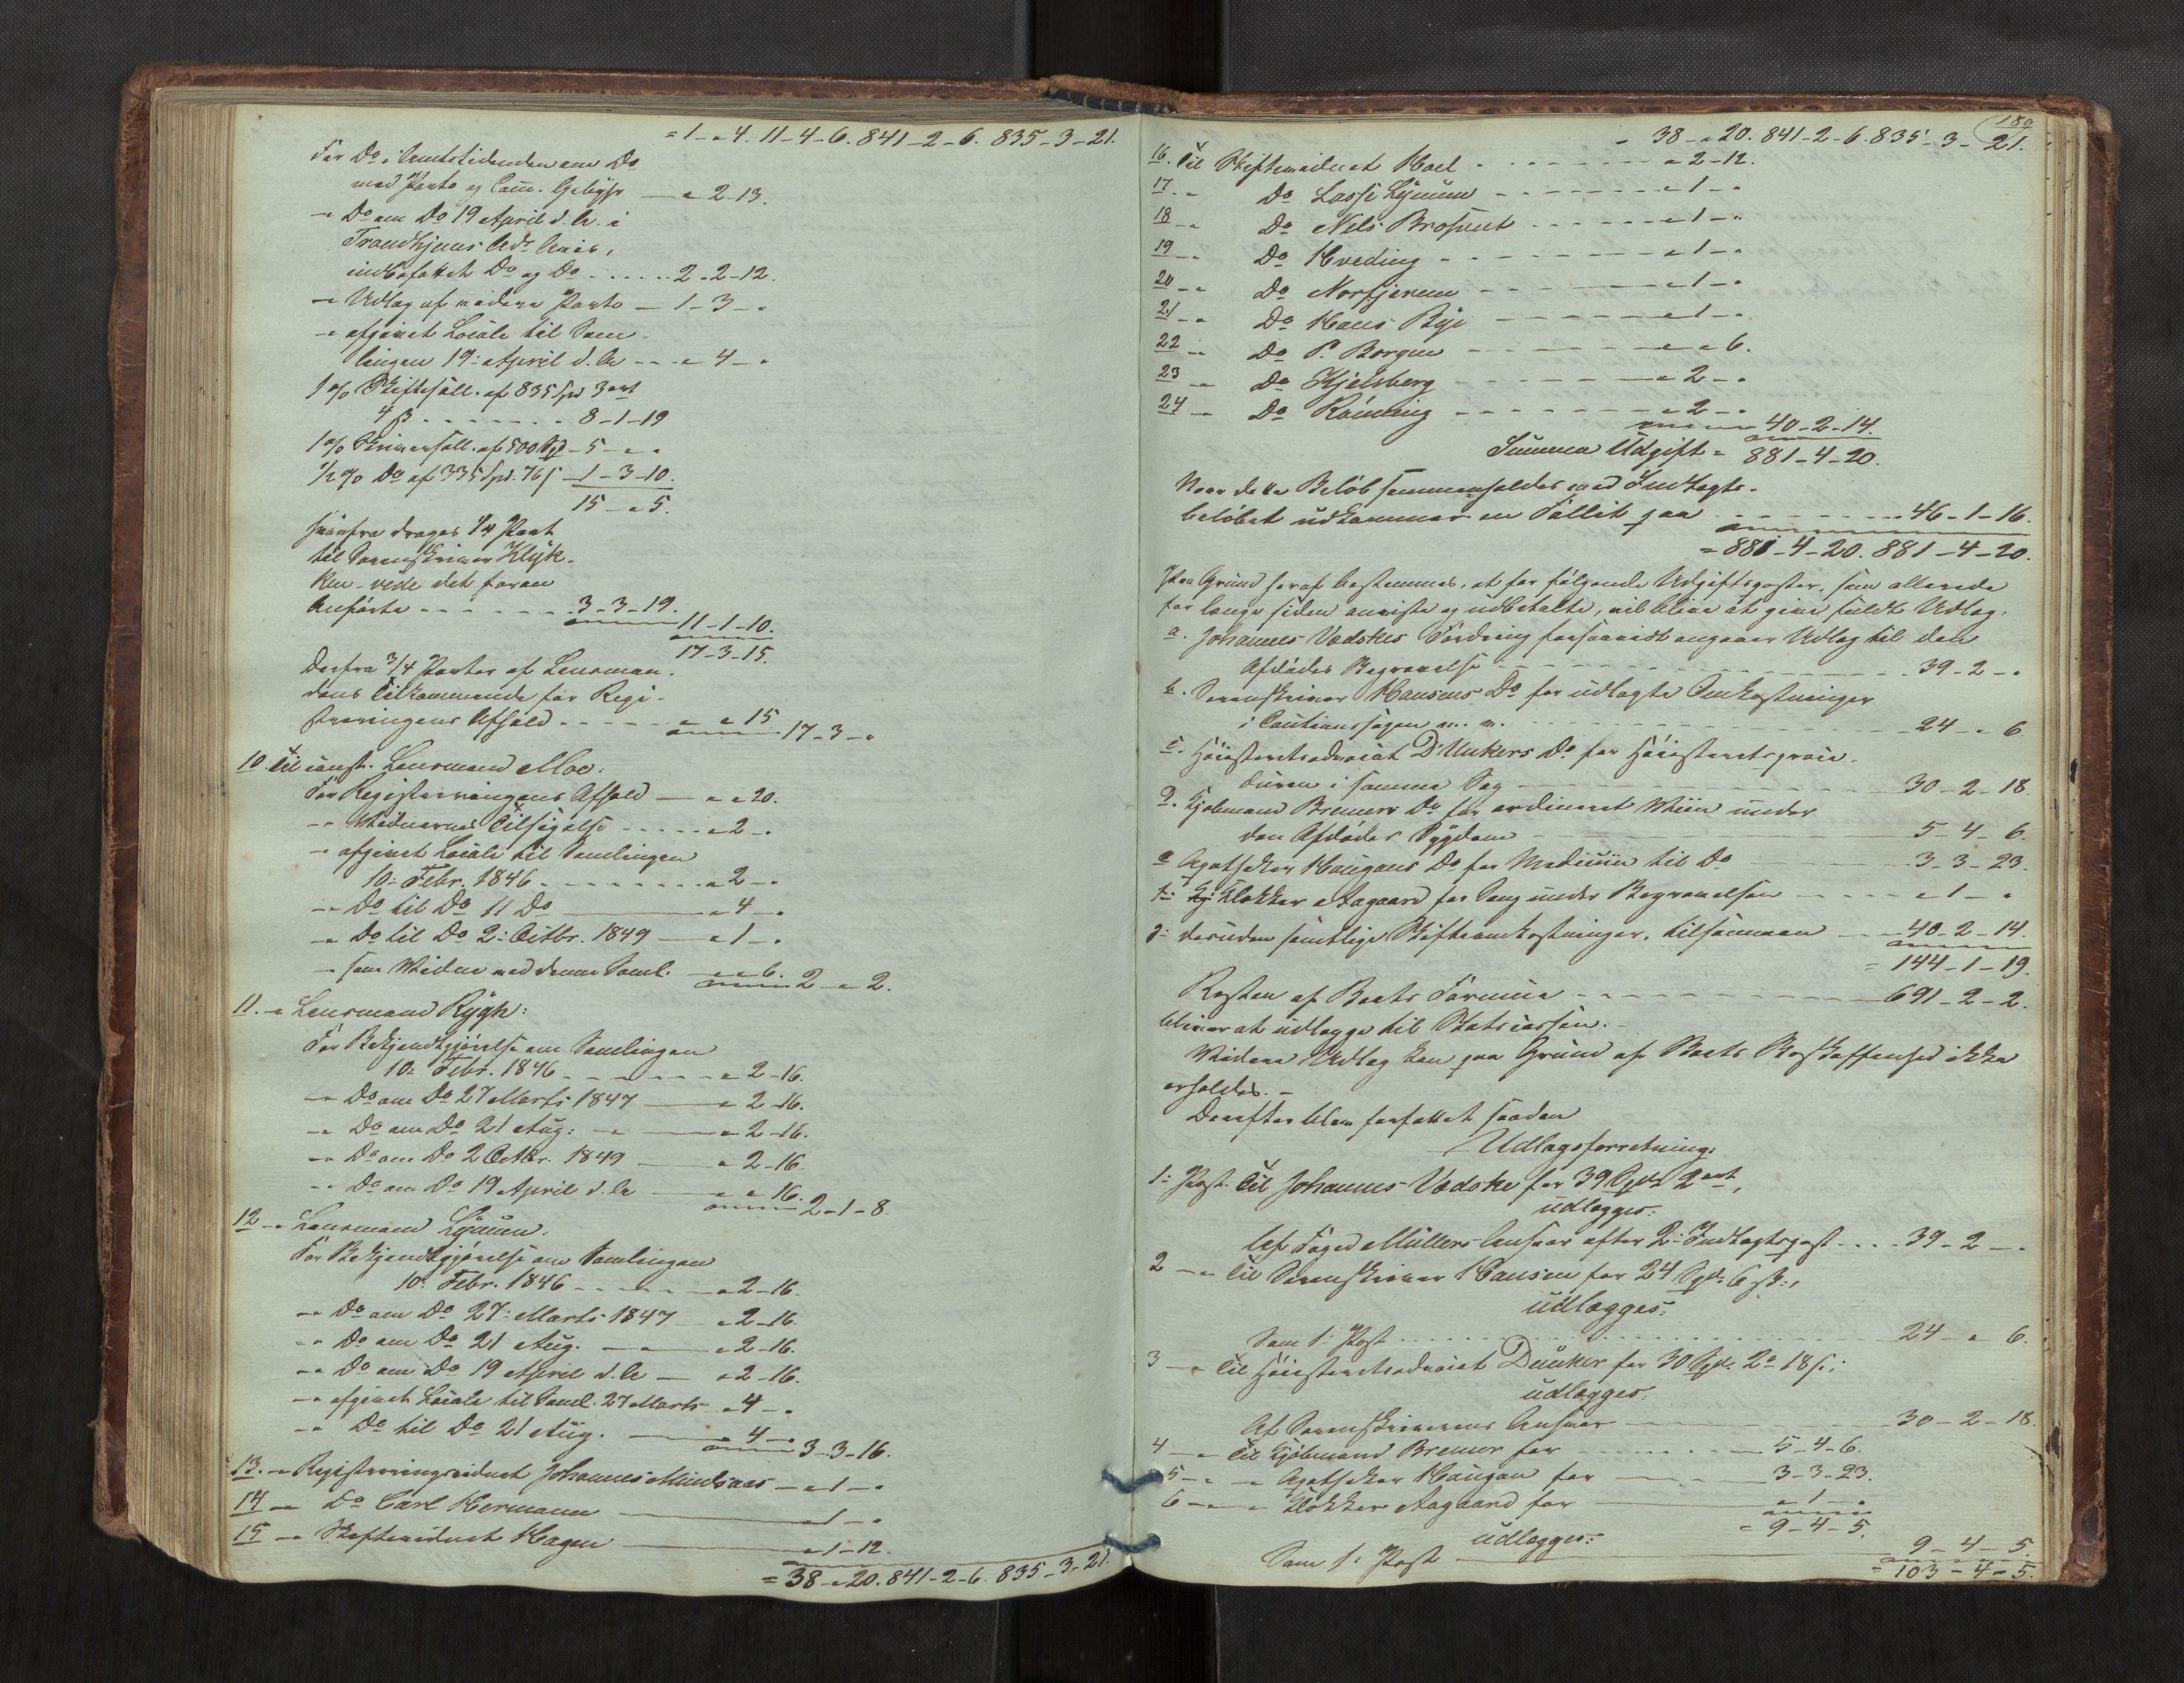 = 1 - " 4. 11 - 4 - 6. 841 - 2 - 6. 835 - 3 - 21.
For Do i Amtstidenden om Do
med Porto og Com. Gebyhr — " 2 - 13.
-" Do om Do 19 April d. A. i
Trondhjems Adr. Avis,
indbefattet Do og Do ..... 2 - 2 - 12.
-" Udlæg af videre Porto — 1 - 3 - "
-" afgivet Locale til Sam-
lingen 19: April d. A. - - - " 4 - "
1 % Skiftesall. af 835 Spd 3 ort
4 β ....... 8 - 1 - 19
1 % Skriversall. af 500 Spd - 5 - " "
1/2 % Do af 335 Spd. 76 β - 1 - 3 - 10.
15 - " 5.
herfra drages 1/4 Part
til Sorenskriver Klyk-
ken - vide det foran
Anførte - - - - - - 3 - 3 - 19.
11 - 1 - 10.
17 - 3 - 15.
Derfra 3/4 Parter af Lensman-
dens Tilkommende for Regi-
streringens Afhold - - - - " " 15
17 - 3 - "
10. Til const. Lensmand Moe:
For Registreringens Afhold — " " 20.
-" Vidnernes Tilsigelse ..... " 2 - "
-" afgivet Locale til Samlingen
10: Febr. 1846 - - - - - - - " 2 - "
-" Do til Do 11 Do — " 4 - "
-" Do til Do 2: Octbr. 1849 — " 1 - "
-" som Vidne ved denne Saml. — " " 6. 2 - " 2.
11. -" Lensmand Rygh:
For Bekjendtgjørelse om Samlingen
10: Febr. 1846 - - - - - - " 2 - 16.
-" Do om Do 27 Marts 1847 — " 2 - 16.
-" Do om Do 21 Aug: -" — " 2 - 16.
-" Do om Do 2 Octbr. 1849 — " 2 - 16.
-" Do om Do 19 April d. A — " " 16.
2 - 1 - 8.
12 -" Lensmand Lynum.
For Bekjendtgjørelse om Samlingen
10: Febr. 1846 - - - - " 2 - 16.
-" Do om Do 27: Marts 1847 — " 2 - 16.
-" Do om Do 21 Aug. -" — " 2 - 16.
-" Do om Do 19 April d. A — " 2 - 16.
-" afgivet Locale til Saml. 27 Marts " 4 - "
-" Do til Do 21 Aug. — " 4 - "
3 - 3 - 16.
13. -" Registreringsvidnet Johannes Mindsaas — " 1 - "
14 -" Do Carl Hermann — " 1 - "
15 -" Skiftevidnet Hagen — " 1 - 12.
= 38 - " 20. 841 - 2 - 6. 835 - 3 - 21.
189
= 38 - " 20. 841 - 2 - 6. 835 - 3 - 21.
16. Til Skiftevidnet Hoel - - - - - - - " 2 - 12.
17. -" Do Lasse Lynum - - - - - - " 1 - "
18 -" Do Nels - - - - - - " 1 - "
19 -" Do Hveding - - - - - - - " 1 - "
20 -" Do - - - - - - " 1 - "
21 -" Do Hans Bye - - - - - - " 1 - "
22 -" Do P. Borgen - - - - - - " " 6.
23 -" Do Kjelsberg - - - - - " 2 - "
24 -" Do Rønning - - - - - - " 2 - "
40 - 2 - 14.
Summa Udgift = 881 - 4 - 20.
Naar dette Beløb sammenholdes med Indtægts-
beløbet udkommer en Fallit paa - - - - 46 - 1 - 16.
= 881 - 4 - 20. 881 - 4 - 20.
Paa Grund heraf bestemmes, at for følgende Udgiftsposter, som allerede
for lange siden anviste og udbetalte, vil blive at give fuldt Udlæg:
a. Johannes Vedskes Fordring forsaavidt angaaer Udlæg til den
Afdødes Begravelse - - - - - - 39 - 2 - "
b. Sorenskriver Hansens Do for udlagte Omkostninger
i Cautionssagen m. m. - - - - - - 24 - " 6
c. Høiesteretsadvocat Dunkers Do for Høiesteretsproce-
duren i samme Sag - - - - - - 30 - 2 - 18
d. Kjøbmand Bremers Do for ordineret Viin under
den Afdødes Sygdom - - - - - - 5 - 4 - 6.
e Apotheker Haugans Do for Medicin til Do - - - - 3 - 3 - 23.
f: Kj: Klokker Aagaard for Sang under Begravelsen - - - - " 1 - "
g: desuden samtlige Skifteomkostninger, tilsammen - - 40 - 2 - 14.
= 144 - 1 - 19.
Resten af Boets Formue - - - - - - 691 - 2 - 2.
bliver at udlægge til Statscassen. -
Videre Udlæg kan paa Grund af Boets Beskaffenhed ikke
erholdes. -
Derefter blev forfattet saadan
Udlægsforretning:
1: Post. Til Johannes Vedske for 39 Spd 2 ort,
udlægges:
Af Foged Müllers Ansvar efter 2: Indtægtspost . . . . 39 - 2 - "
2 -" Til Sorenskriver Hansen for 24 Spd. 6 β:,
udlægges:
Som 1: Post . . . . . . . . 24 - " 6.
3 -" Til Høiesteretsadvocat Dunker for 30 Spd. 2 o 18 β:
udlægges:
Af Sorenskriverens Ansvar - - - - 30 - 2 - 18.
4 -" Til Kjøbmand Bremer for - - - - - 5 - 4 - 6.
5 -" -" Apotheker Haugan for - - - - 3 - 3 - 23.
6 -" -" Klokker Aagaard for - - - - " 1 - "
= 9 - 4 - 5.
udlægges:
Som 1: Post — 9 - 4 - 5.
= 103 - 4 - 5.